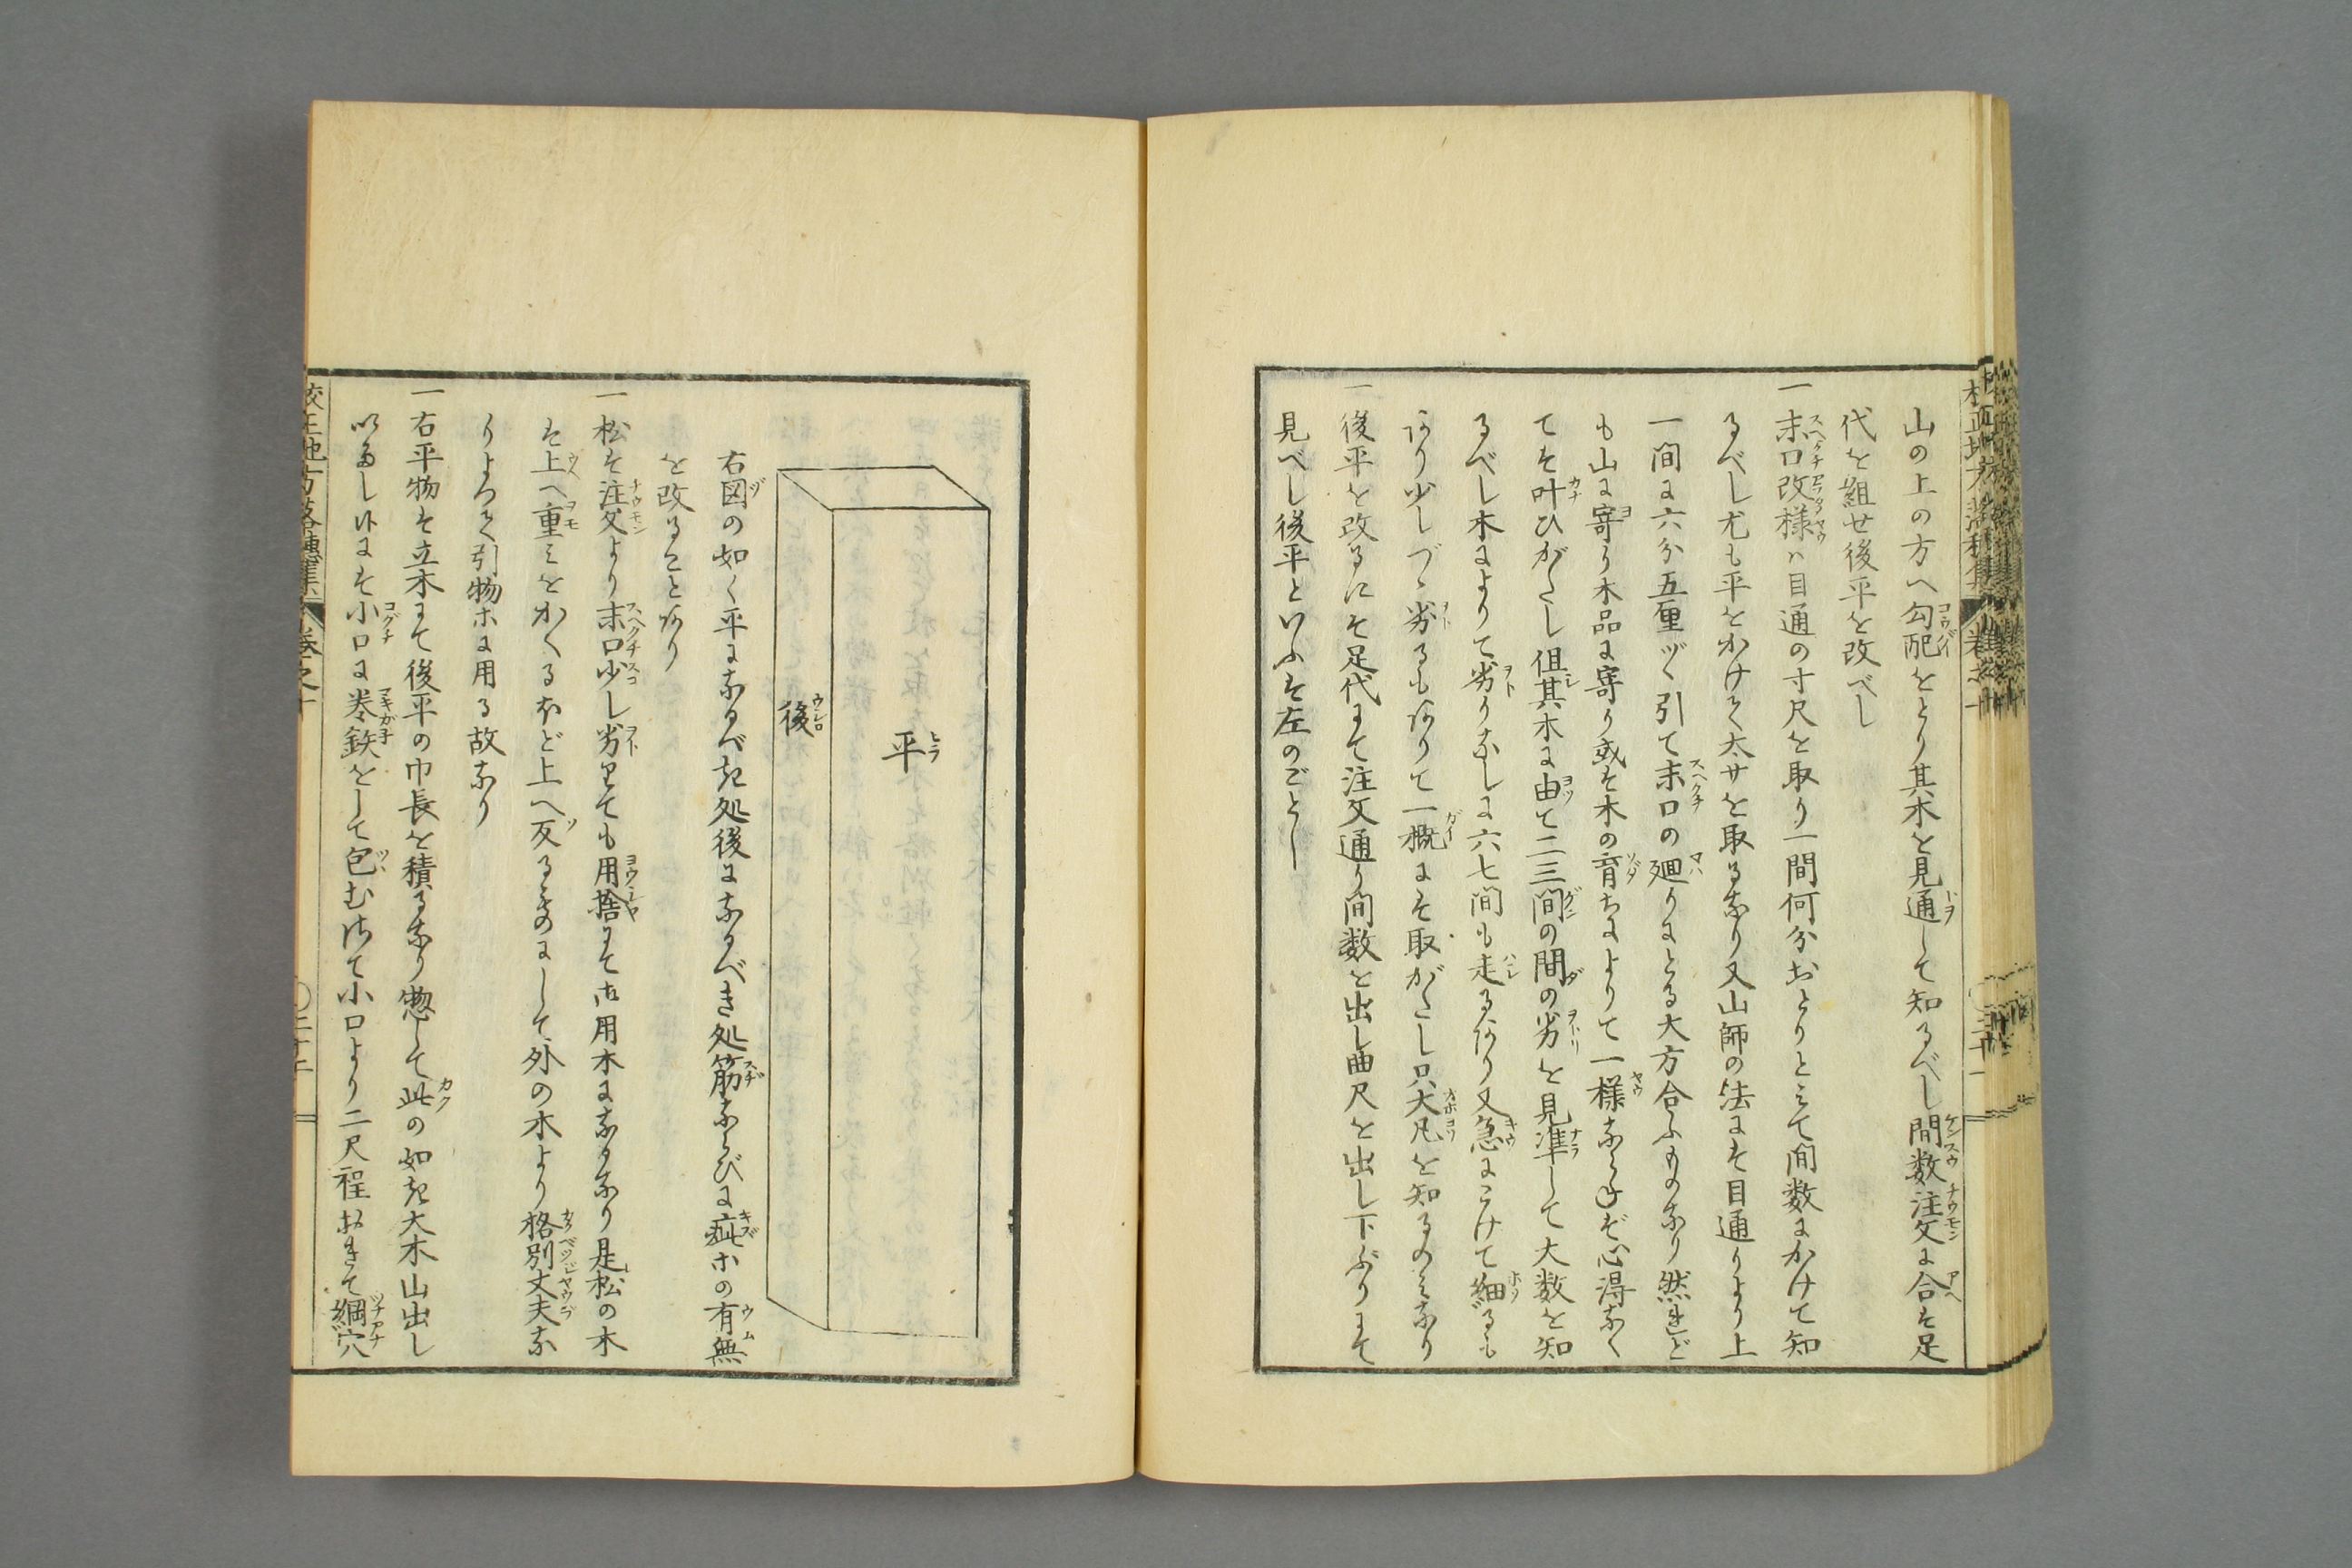 山の上の方へ勾配をとり其木を見通して知るべし間数注文に合はゞ足
代を組せ後平を改べし
一末口改様ハ目通の寸尺を取り一間何分おとりとミて間数にかけて知
るべし尤も平をかけて太サを取るなり又山師の法には目通りより上
一間に六分五厘ヅヽ引て末口の廻りにとる大方合ふものなり然れど
も山に寄り木品に寄り或は木の育ちによりて一様ならねど心得なく
ては叶ひがたし但其木に由て二三間の間の劣を見準して大数を知
るべし木によりて劣りなしに六七間も走るあり又急にこけて細るも
あり少しづゝ劣るもありて一概には取がたし只大凡を知るのミなり
一後平を改るには足代にて注文通り間数を出し曲尺を出し下ぶりにて
見べし後平といふは左のごとし
平 ヒラ
後 ウシロ
右図の如く平になるべき処後になるべき処筋ならびに疵ホの有無
を改ることあり
一松は注文より末口少し劣りても用捨にて御用木になるなり是松の木
は上へ重ミをかくるほど上へ反るものにして外の木より格別丈夫な
りよつて引物ホに用る故なり
一右平物は立木にて後平の巾長を積るなり惣して此の如き大木山出し
いたし候には小口に巻鉄をして包むさて小口より二尺程おきて綱穴
校正地方落穂集 巻之十